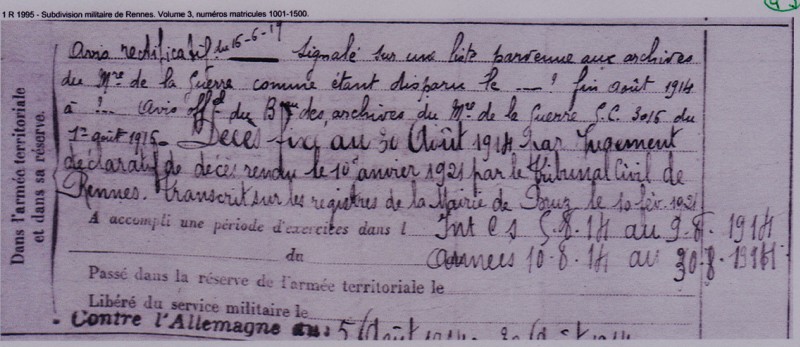 1 R 1995 - Subdivision militaire de Rennes. Volume 3, numéros matricules 1001-1500.
Dans l'armée territoriale
et dans sa réserve.
Avis rectificatif du 16-6-19 Signalé sur une liste parvenue aux archives
du Mre de la Guerre comme étant disparu le __ ? fin août 1914
à ?__ Avis off du B des archives du Mre de la Guerre G.C. 3016 du
1er août 1916. Décès fixé au 30 Août 1914 par Jugement
déclaratif de décès rendu le 10 janvier 1921 par le Tribunal Civil de
Rennes. Transcrit sur les registres de la Mairie de Bruz le 10 fév. 1921
A accompli une période d'exercices dans l Int C S 5.8.14 au 9.8.1914
du armées 10-8-14 au 30.8.1914
Passé dans la réserve de l'armée territoriale le
Libéré du service militaire le
Contre l'Allemagne du: 5 Août 1914 - 30 Août 1914